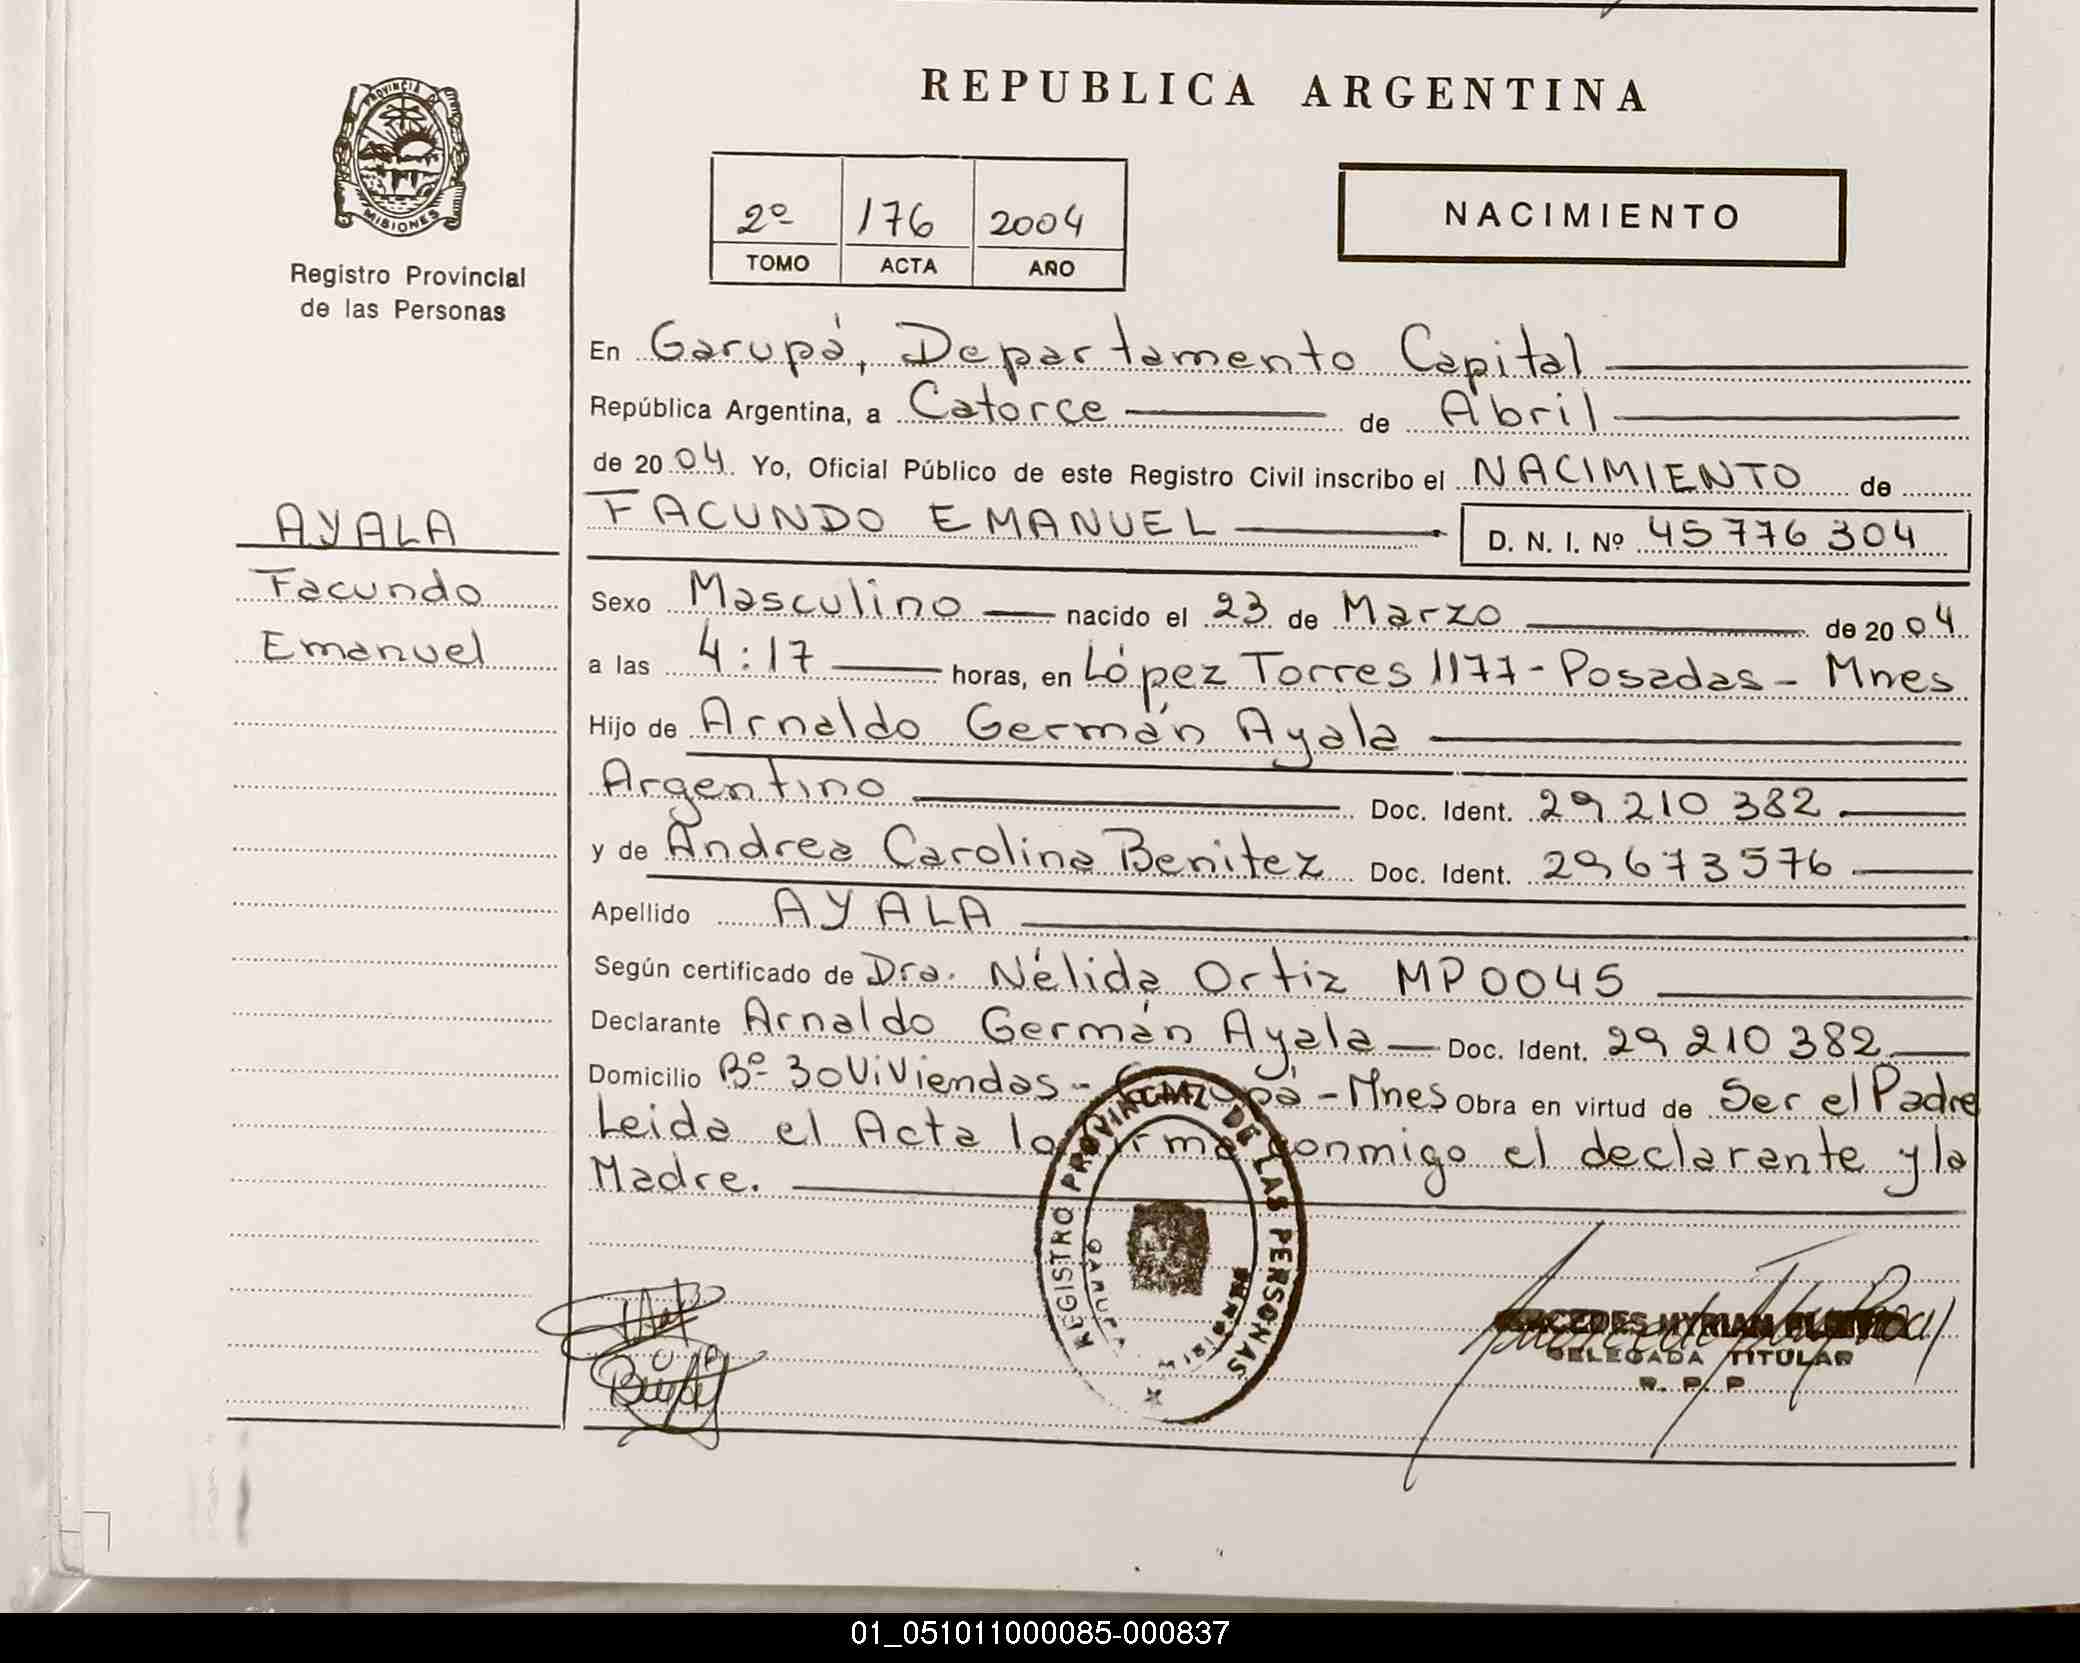 REPUBLICA ARGENTINA
PROVINCIA D
MISIONES
Registro Provincial
de las Personas
2º 176 2004
TOMO ACTA AÑO
NACIMIENTO
En Garupá, Departamento Capital
República Argentina, a Catorce de Abril
de 2004. Yo, Oficial Público de este Registro Civil inscribo el NACIMIENTO de
FACUNDO EMANUEL D. N. I. Nº 45776304
AYALA
Facundo
Emanuel
Sexo Masculino nacido el 23 de Marzo de 2004
a las 4:17 horas, en López Torres 1177-Posadas-Mnes
Hijo de Arnaldo Germán Ayala
Argentino Doc. Ident. 29210382
y de Andrea Carolina Benitez Doc. Ident. 29673576
Apellido AYALA
Según certificado de Dra. Nélida Ortiz MP0045
Declarante Arnaldo Germán Ayala Doc. Ident. 29210382
Domicilio Bº 30 Viviendas - Garupá - Mnes Obra en virtud de Ser el Padre
Leida el Acta la firma conmigo el declarante y la
Madre.
REGISTRO PROVINCIAL DE LAS PERSONAS
MYRIAM
DELEGADA TITULAR
R. P. P
01_051011000085-000837